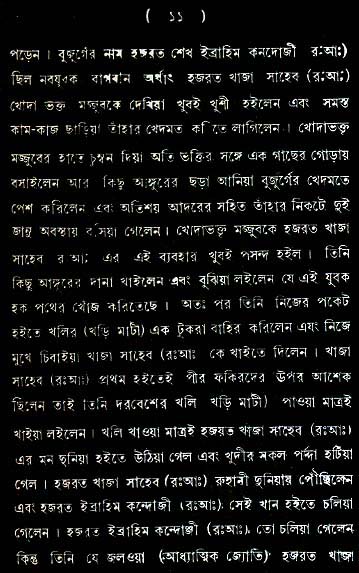 ( ১১ )
পড়েন। বুজুর্গের নাম হজরত শেখ ইব্রাহিম কনদোজী র:আঃ)
ছিল নবযুবক বাগবান অর্থাৎ হজরত খাজা সাহেব (র:আ:)
খোদা ভক্ত মজ্জুবকে দেখিয়া খুবই খুশী হইলেন এবং সমস্ত
কাম-কাজ ছাড়িয়া তাঁহার খেদমত করিতে লাগিলেন। খোদাভক্ত
মজ্জুবের হাতে চুম্বন দিয়া অতি ভক্তির সঙ্গে এক গাছের গোড়ায়
বসাইলেন আর কিছু আঙ্গুরের ছড়া আনিয়া বুজুর্গের খেদমতে
পেশ করিলেন এবং অতিশয় আদরের সহিত তাঁহার নিকটে দুই
জানু অবস্থায় বসিয়া গেলেন। খোদাভক্ত মজ্জুবকে হজরত খাজা
সাহেব র আ: এর এই ব্যবহার খুবই পসন্দ হইল। তিনি
কিছু আঙ্গুরের দানা খাইলেন এবং বুঝিয়া লইলেন যে এই যুবক
হক পথের খোঁজ করিতেছে। অতঃ পর তিনি নিজের পকেট
হইতে খলির (খড়ি মাটী) এক টুকরা বাহির করিলেন এবং নিজে
মুখে চিবাইয়া খাজা সাহেব (রঃআঃ কে খাইতে দিলেন। খাজা
সাহেব (রঃআঃ) প্রথম হইতেই পীর ফকিরদের উপর আশেক
ছিলেন তাই তিনি দরবেশের খলি খড়ি মাটী) পাওয়া মাত্রই
খাইয়া লইলেন। খলি খাওয়া মাত্রই হজরত খাজা সাহেব (রঃআঃ)
এর মন দুনিয়া হইতে উঠিয়া গেল এবং খুদীর সকল পর্দ্দা হটিয়া
গেল। হজরত খাজা সাহেব (রঃআঃ) রুহানী দুনিয়ায় পৌছিলেন
এবং হজরত ইব্রাহিম কন্দোজী (রঃআঃ) সেই খান হইতে চলিয়া
গেলেন। হজরত ইব্রাহিম কন্দোজী (রঃআঃ) তো চলিয়া গেলেন
কিন্তু তিনি যে জলওয়া (আধ্যাত্মিক জ্যোতি) হজরত খাজা